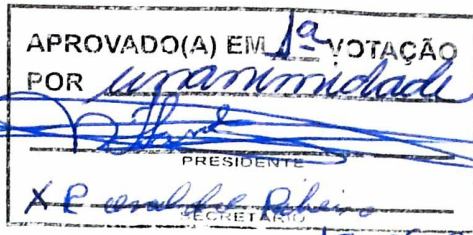 APROVADO(A) EM 1ª VOTAÇÃO
POR unanimidade
PRESIDENTE
X
SECRETÁRIO